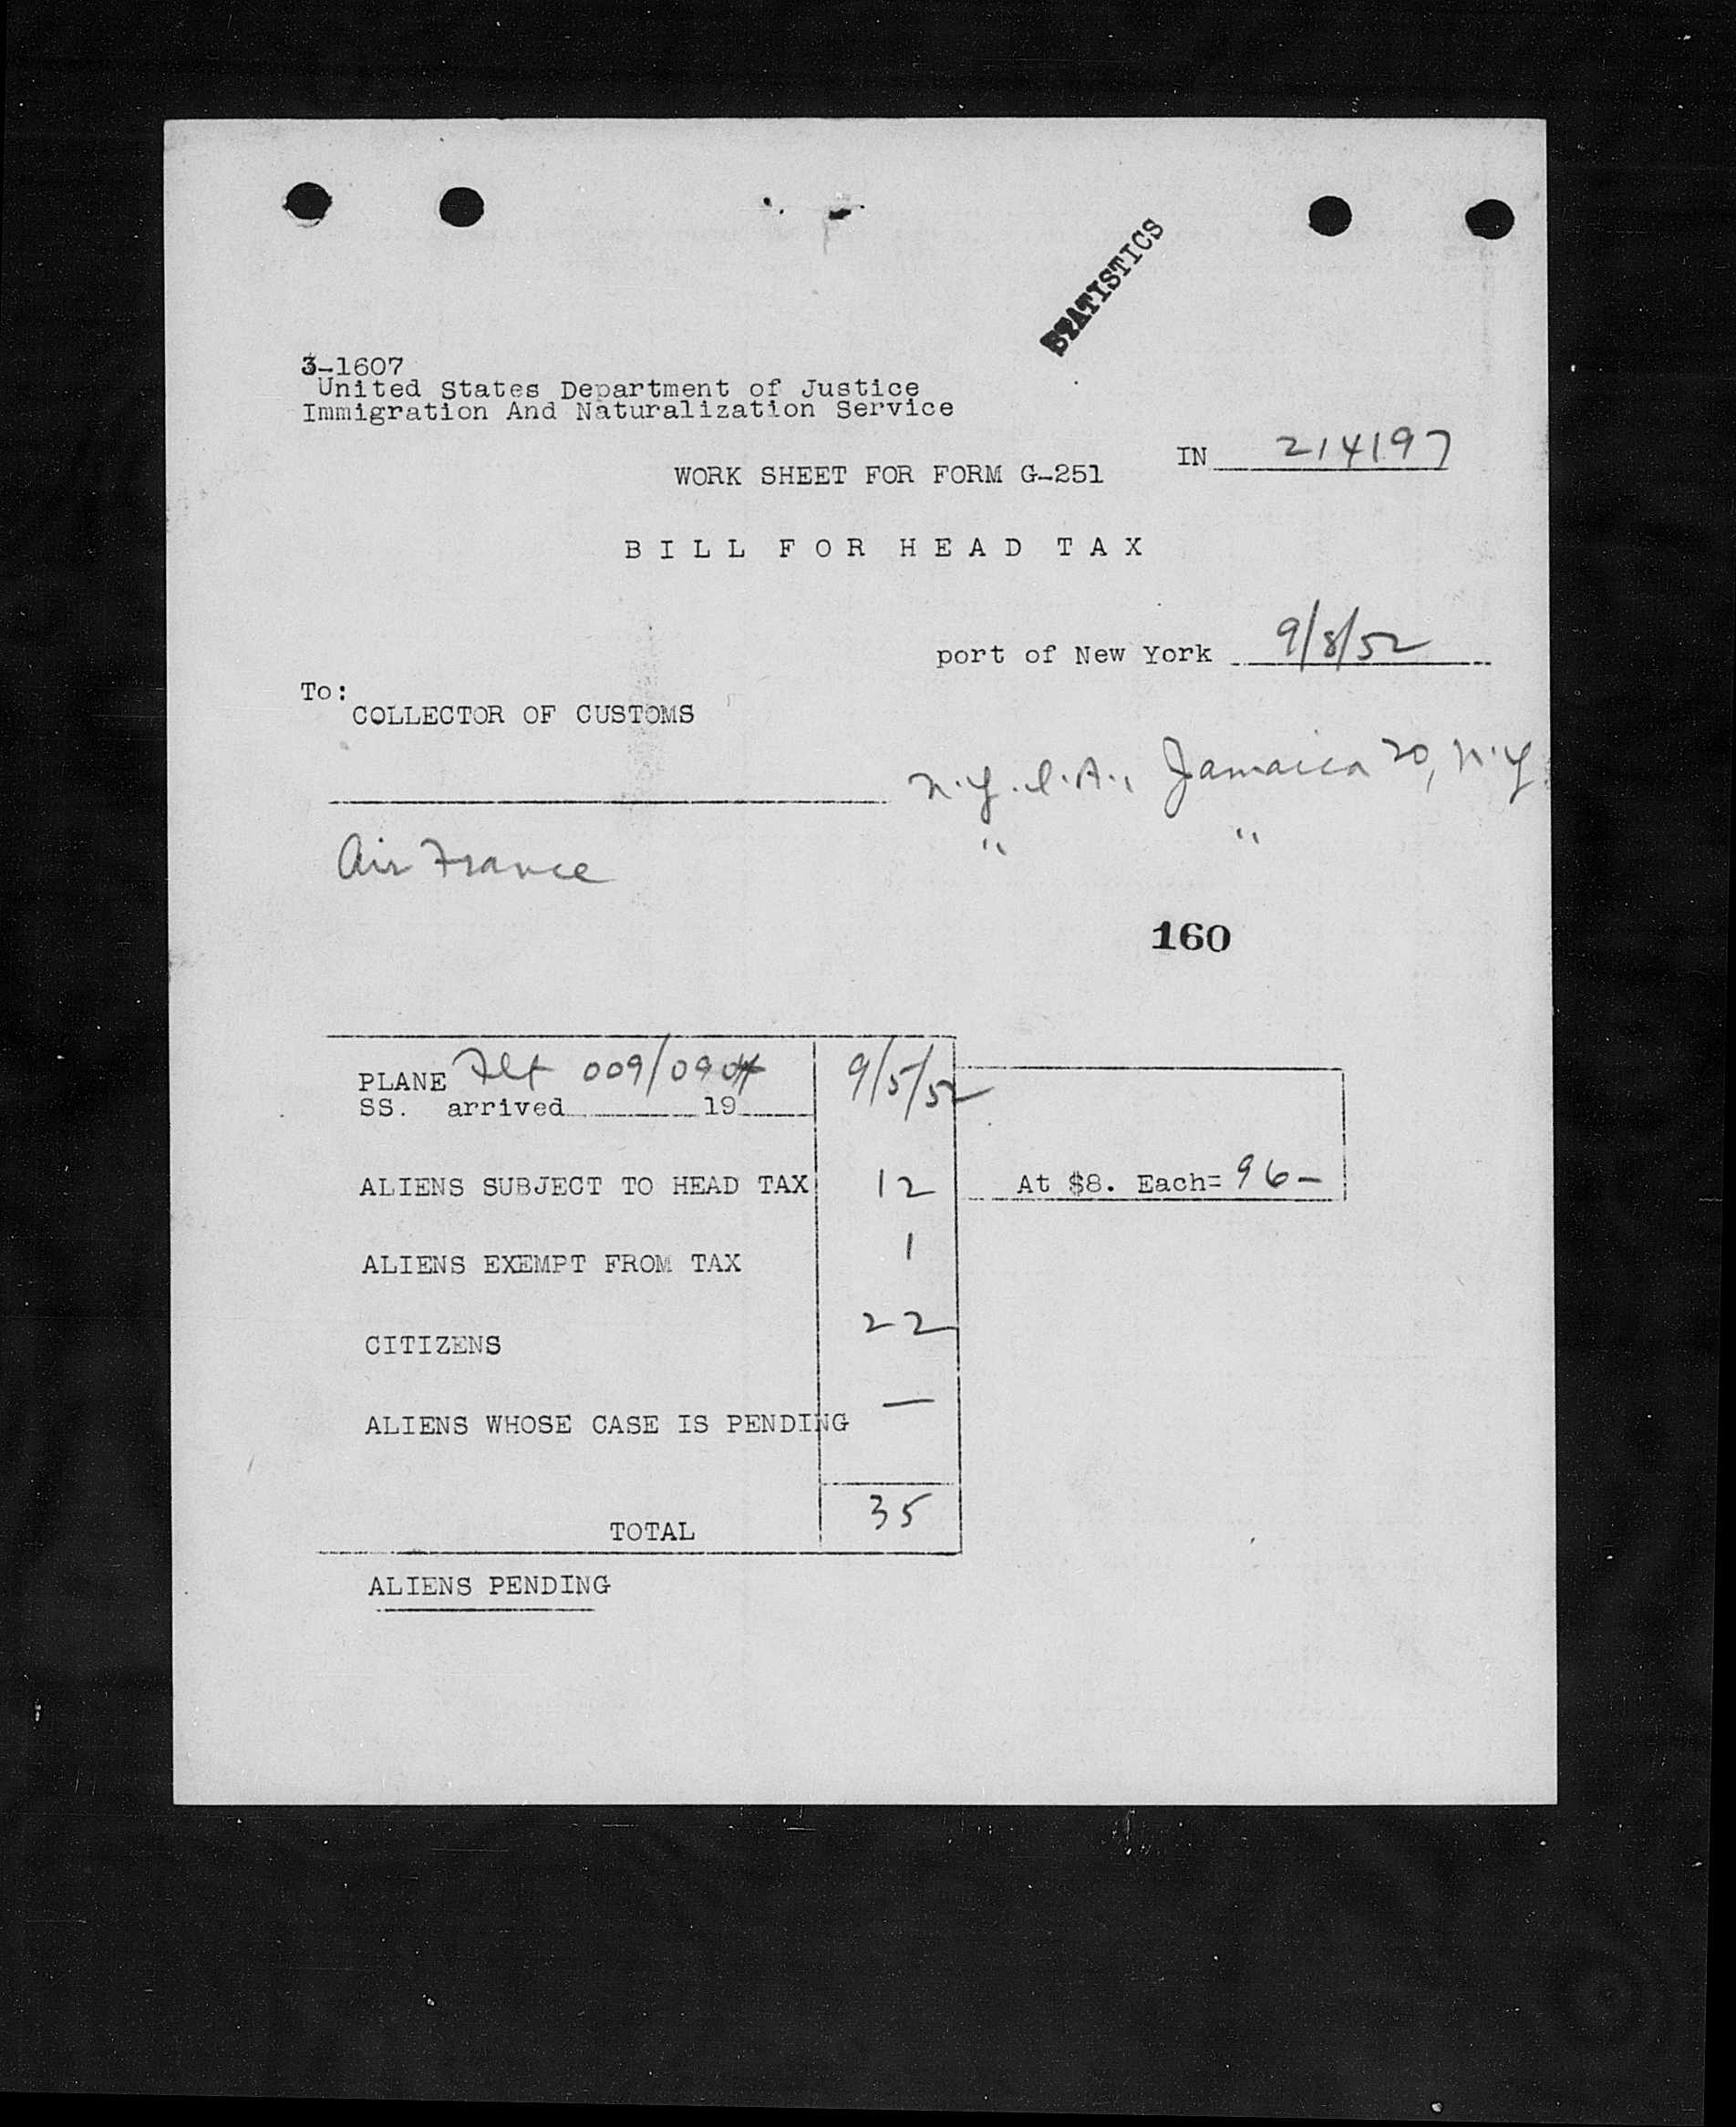 STATISTICS
3-1607
United States Department of Justice
Immigration And Naturalization Service
IN 214197
WORK SHEET FOR FORM G-251
BILL FOR HEAD TAX
port of New York 9/8/52
To:
COLLECTOR OF CUSTOMS
N.Y.I.A., Jamaica 20, N.Y.
" "
Air France
160
PLANE Flt 009/090 9/5/52
SS. arrived 19
ALIENS SUBJECT TO HEAD TAX 12 At $8. Each= 96-
ALIENS EXEMPT FROM TAX 1
CITIZENS 22
ALIENS WHOSE CASE IS PENDING —
TOTAL 35
ALIENS PENDING